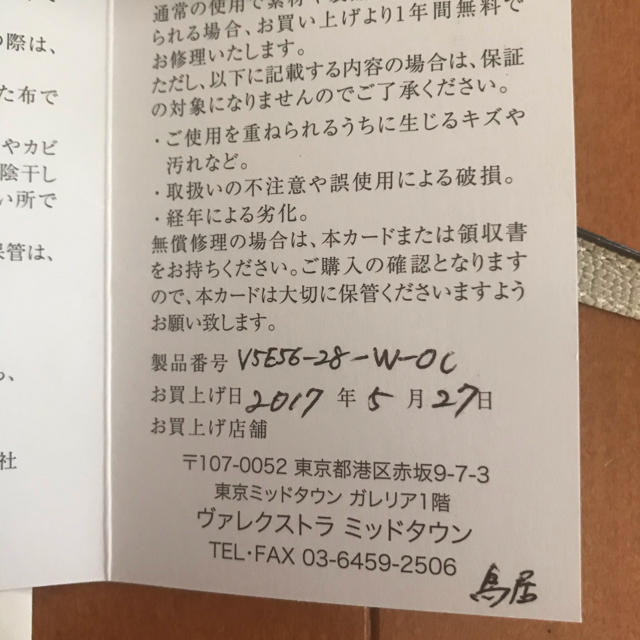 の際は、
た布で
やカビ
陰干し
い所で
保管は、
社
通常の使用で素材や
られる場合、お買い上げより1年間無料で
お修理いたします。
ただし、以下に記載する内容の場合は、保証
の対象になりませんのでご了承ください。
・ご使用を重ねられるうちに生じるキズや
汚れなど。
・取扱いの不注意や誤使用による破損。
・経年による劣化。
無償修理の場合は、本カードまたは領収書
をお持ちください。ご購入の確認となります
ので、本カードは大切に保管くださいますよう
お願い致します。
製品番号 V5E56-28-W-OC
お買上げ日 2017 年 5 月 27 日
お買上げ店舗
〒107-0052 東京都港区赤坂9-7-3
東京ミッドタウン ガレリア1階
ヴァレクストラ ミッドタウン
TEL・FAX 03-6459-2506
鳥居